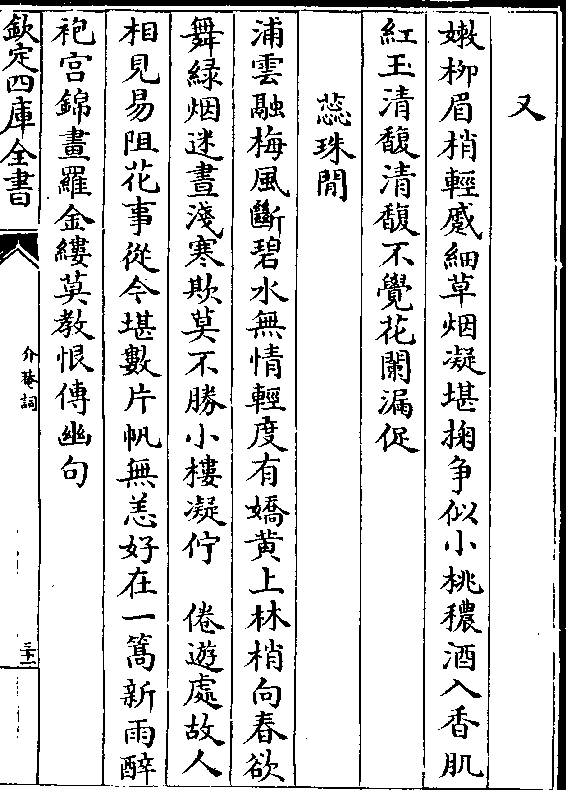 又
嫩柳眉梢輕蹙細草烟凝堪掬争似小桃穠酒入香肌
紅玉清馥清馥不覺花闌漏促
蕊珠閒
浦雲融梅風斷碧水無情輕度有嬌黄上林梢向春欲
舞緑烟迷晝淺寒欺莫不勝小樓凝佇　倦遊處故人
相見易阻花事從今堪數片帆無恙好在一篙新雨醉
袍宫錦畫羅金縷莫教恨傳幽句
欽定四庫全書
介菴詞